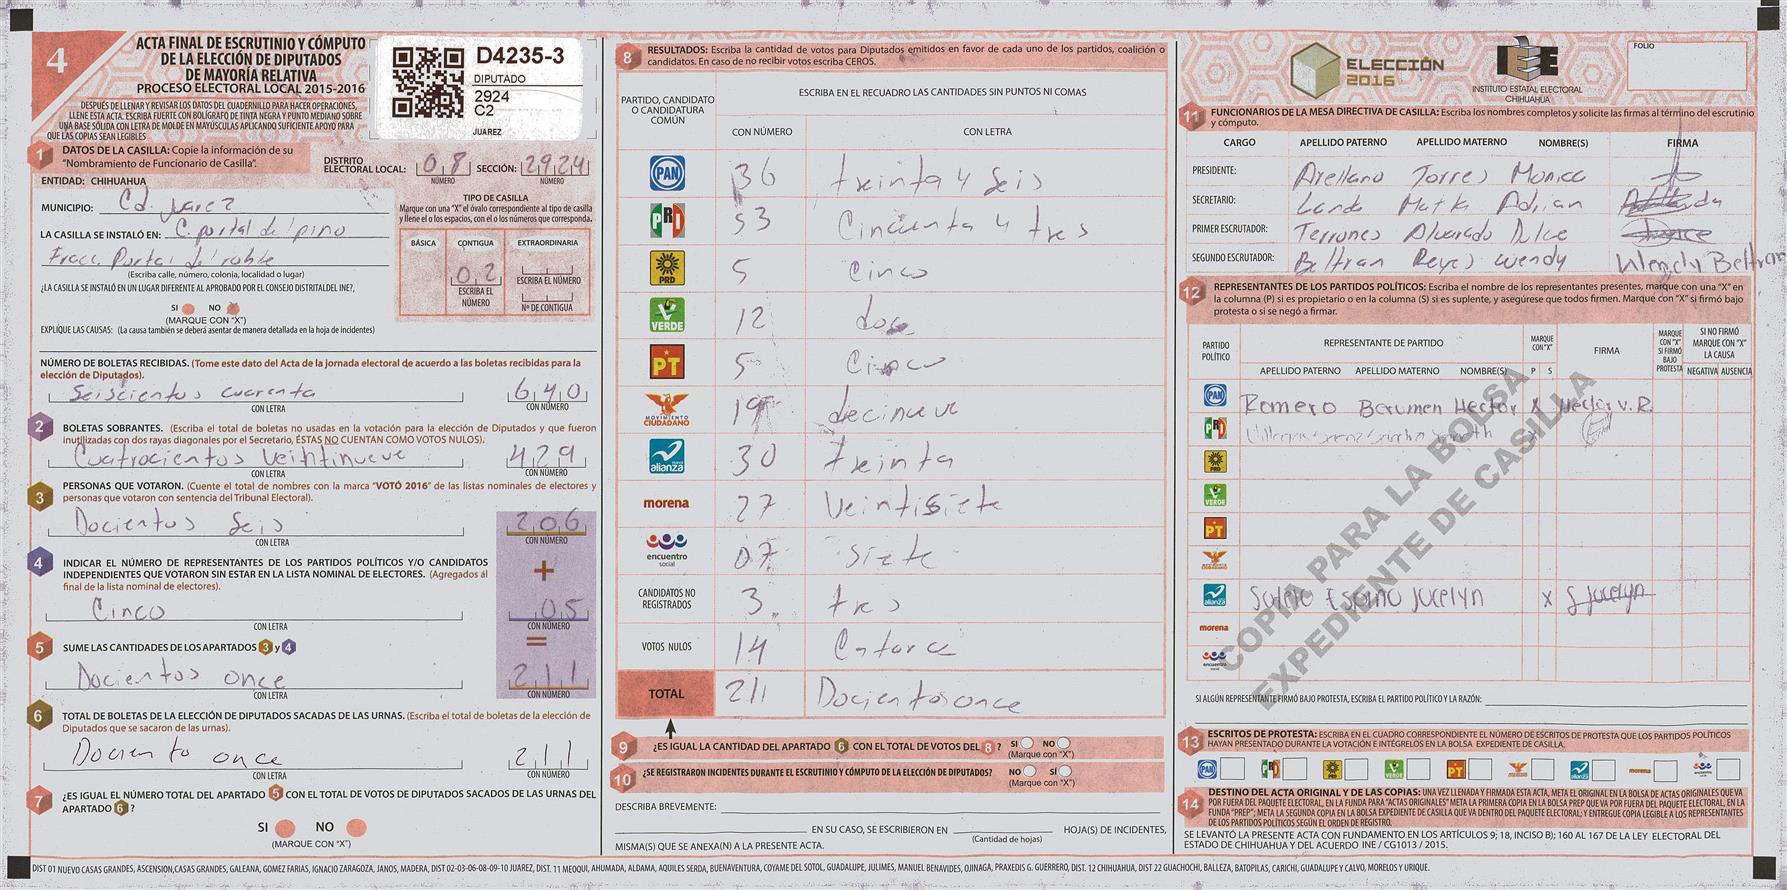 4
ACTA FINAL DE ESCRUTINIO Y CÓMPUTO
DE LA ELECCIÓN DE DIPUTADOS
DE MAYORÍA RELATIVA
PROCESO ELECTORAL LOCAL 2015-2016
DESPUÉS DE LLENAR Y REVISAR LOS DATOS DEL CUADERNILLO PARA HACER OPERACIONES,
LLENE ESTA ACTA. ESCRIBA FUERTE CON BOLÍGRAFO DE TINTA NEGRA Y PUNTO MEDIANO SOBRE
UNA BASE SÓLIDA CON LETRA DE MOLDE EN MAYÚSCULAS APLICANDO SUFICIENTE APOYO PARA
QUE LAS COPIAS SEAN LEGIBLES
D4235-3
DIPUTADO
2924
C2
JUAREZ
1 DATOS DE LA CASILLA: Copie la información de su
"Nombramiento de Funcionario de Casilla".
DISTRITO
ELECTORAL LOCAL: 08 SECCIÓN: 2924
NÚMERO NÚMERO
ENTIDAD: CHIHUAHUA
MUNICIPIO: Cd. Juarez
LA CASILLA SE INSTALÓ EN: C. portal del pino
Fracc. Portal del roble
(Escriba calle, número, colonia, localidad o lugar)
TIPO DE CASILLA
Marque con una "X" el óvalo correspondiente al tipo de casilla
y llene el o los espacios, con el o los números que corresponda.
BÁSICA CONTIGUA EXTRAORDINARIA
02
ESCRIBA EL NÚMERO
ESCRIBA EL NÚMERO
Nº DE CONTIGUA
¿LA CASILLA SE INSTALÓ EN UN LUGAR DIFERENTE AL APROBADO POR EL CONSEJO DISTRITAL DEL INE?,
SI NO X
(MARQUE CON "X")
EXPLIQUE LAS CAUSAS: (La causa también se deberá asentar de manera detallada en la hoja de incidentes)
NÚMERO DE BOLETAS RECIBIDAS. (Tome este dato del Acta de la jornada electoral de acuerdo a las boletas recibidas para la
elección de Diputados).
Seiscientos cuarenta 640
CON LETRA CON NÚMERO
2 BOLETAS SOBRANTES. (Escriba el total de boletas no usadas en la votación para la elección de Diputados y que fueron
inutilizadas con dos rayas diagonales por el Secretario, ÉSTAS NO CUENTAN COMO VOTOS NULOS).
Cuatrocientos Veintinueve 429
CON LETRA CON NÚMERO
3 PERSONAS QUE VOTARON. (Cuente el total de nombres con la marca "VOTÓ 2016" de las listas nominales de electores y
personas que votaron con sentencia del Tribunal Electoral).
Docientos Seis 206
CON LETRA CON NÚMERO
+
4 INDICAR EL NÚMERO DE REPRESENTANTES DE LOS PARTIDOS POLÍTICOS Y/O CANDIDATOS
INDEPENDIENTES QUE VOTARON SIN ESTAR EN LA LISTA NOMINAL DE ELECTORES. (Agregados al
final de la lista nominal de electores).
Cinco 05
CON LETRA CON NÚMERO
=
5 SUME LAS CANTIDADES DE LOS APARTADOS 3 y 4
Docientos once 211
CON LETRA CON NÚMERO
6 TOTAL DE BOLETAS DE LA ELECCIÓN DE DIPUTADOS SACADAS DE LAS URNAS. (Escriba el total de boletas de la elección de
Diputados que se sacaron de las urnas).
Dociento once 211
CON LETRA CON NÚMERO
7 ¿ES IGUAL EL NÚMERO TOTAL DEL APARTADO 5 CON EL TOTAL DE VOTOS DE DIPUTADOS SACADOS DE LAS URNAS DEL
APARTADO 6?
SI NO
(MARQUE CON "X")
8 RESULTADOS: Escriba la cantidad de votos para Diputados emitidos en favor de cada uno de los partidos, coalición o
candidatos. En caso de no recibir votos escriba CEROS.
PARTIDO, CANDIDATO
O CANDIDATURA
COMÚN
ESCRIBA EN EL RECUADRO LAS CANTIDADES SIN PUNTOS NI COMAS
CON NÚMERO CON LETRA
PAN 36 treinta y seis
PRI 53 Cincuenta y tres
PRD 5 Cinco
VERDE 12 doce
PT 5 Cinco
MOVIMIENTO CIUDADANO 19 decinueve
alianza 30 treinta
morena 27 Veintisiete
encuentro social 07 siete
CANDIDATOS NO REGISTRADOS 3 tres
VOTOS NULOS 14 Catorce
TOTAL 211 Docientos once
9 ¿ES IGUAL LA CANTIDAD DEL APARTADO 6 CON EL TOTAL DE VOTOS DEL 8? SI NO
(Marque con "X")
10 ¿SE REGISTRARON INCIDENTES DURANTE EL ESCRUTINIO Y CÓMPUTO DE LA ELECCIÓN DE DIPUTADOS? NO SI
(Marque con "X")
DESCRIBA BREVEMENTE:
EN SU CASO, SE ESCRIBIERON EN HOJA(S) DE INCIDENTES,
(Cantidad de hojas)
MISMA(S) QUE SE ANEXA(N) A LA PRESENTE ACTA.
ELECCIÓN
2016
IEE
INSTITUTO ESTATAL ELECTORAL
CHIHUAHUA
FOLIO
11 FUNCIONARIOS DE LA MESA DIRECTIVA DE CASILLA: Escriba los nombres completos y solicite las firmas al término del escrutinio
y cómputo.
CARGO APELLIDO PATERNO APELLIDO MATERNO NOMBRE(S) FIRMA
PRESIDENTE: Arellano Torres Monica
SECRETARIO: Landa Mata Adrian
PRIMER ESCRUTADOR: Terrones Alvarado Dulce
SEGUNDO ESCRUTADOR: Beltran Reyes Wendy Wendy Beltran
12 REPRESENTANTES DE LOS PARTIDOS POLÍTICOS: Escriba el nombre de los representantes presentes, marque con una "X" en
la columna (P) si es propietario o en la columna (S) si es suplente, y asegúrese que todos firmen. Marque con "X" si firmó bajo
protesta o si se negó a firmar.
PARTIDO POLÍTICO
REPRESENTANTE DE PARTIDO
MARQUE CON "X"
FIRMA
MARQUE CON "X" SI FIRMÓ BAJO PROTESTA
SI NO FIRMÓ MARQUE CON "X" LA CAUSA
APELLIDO PATERNO APELLIDO MATERNO NOMBRE(S) P S NEGATIVA AUSENCIA
PAN Romero Berumen Hector X Hector V. R.
PRI
PRD
VERDE
PT
alianza Sotelo Espino Jocelyn X S Jocelyn
morena
encuentro social
COPIA PARA LA BOLSA
EXPEDIENTE DE CASILLA
SI ALGÚN REPRESENTANTE FIRMÓ BAJO PROTESTA, ESCRIBA EL PARTIDO POLÍTICO Y LA RAZÓN:
13 ESCRITOS DE PROTESTA: ESCRIBA EN EL CUADRO CORRESPONDIENTE EL NÚMERO DE ESCRITOS DE PROTESTA QUE LOS PARTIDOS POLÍTICOS
HAYAN PRESENTADO DURANTE LA VOTACIÓN E INTÉGRELOS EN LA BOLSA EXPEDIENTE DE CASILLA.
PAN PRI PRD VERDE PT alianza morena
14 DESTINO DEL ACTA ORIGINAL Y DE LAS COPIAS: UNA VEZ LLENADA Y FIRMADA ESTA ACTA, META EL ORIGINAL EN LA BOLSA DE ACTAS ORIGINALES QUE VA
POR FUERA DEL PAQUETE ELECTORAL, EN LA FUNDA PARA "ACTAS ORIGINALES" META LA PRIMERA COPIA EN LA BOLSA PREP QUE VA POR FUERA DEL PAQUETE ELECTORAL, EN LA
FUNDA "PREP"; META LA SEGUNDA COPIA EN LA BOLSA EXPEDIENTE DE CASILLA QUE VA DENTRO DEL PAQUETE ELECTORAL; Y ENTREGUE COPIA LEGIBLE A LOS REPRESENTANTES
DE LOS PARTIDOS POLÍTICOS SEGÚN EL ORDEN DE REGISTRO.
SE LEVANTÓ LA PRESENTE ACTA CON FUNDAMENTO EN LOS ARTÍCULOS 9; 18, INCISO B); 160 AL 167 DE LA LEY ELECTORAL DEL
ESTADO DE CHIHUAHUA Y DEL ACUERDO INE / CG1013 / 2015.
DIST 01 NUEVO CASAS GRANDES, ASCENSION,CASAS GRANDES, GALEANA, GOMEZ FARIAS, IGNACIO ZARAGOZA, JANOS, MADERA, DIST 02-03-06-08-09-10 JUAREZ, DIST. 11 MEOQUI, AHUMADA, ALDAMA, AQUILES SERDA, BUENAVENTURA, COYAME DEL SOTOL, GUADALUPE, JULIMES, MANUEL BENAVIDES, OJINAGA, PRAXEDIS G. GUERRERO, DIST. 12 CHIHUAHUA, DIST 22 GUACHOCHI, BALLEZA, BATOPILAS, CARICHI, GUADALUPE Y CALVO, MORELOS Y URIQUE.